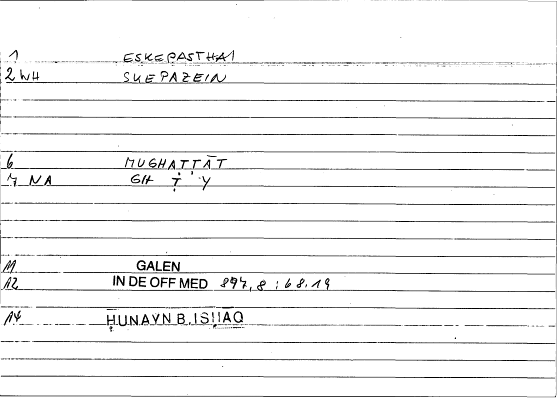 1 ESKEPASTHAI
2 WH SKEPAZEIN
6 MUGHAṬṬĀT
7 NA GH Ṭ Y
11 GALEN
12 IN DE OFF MED 897,8 : 68.19
14 ḤUNAYN B. ISḤĀQ